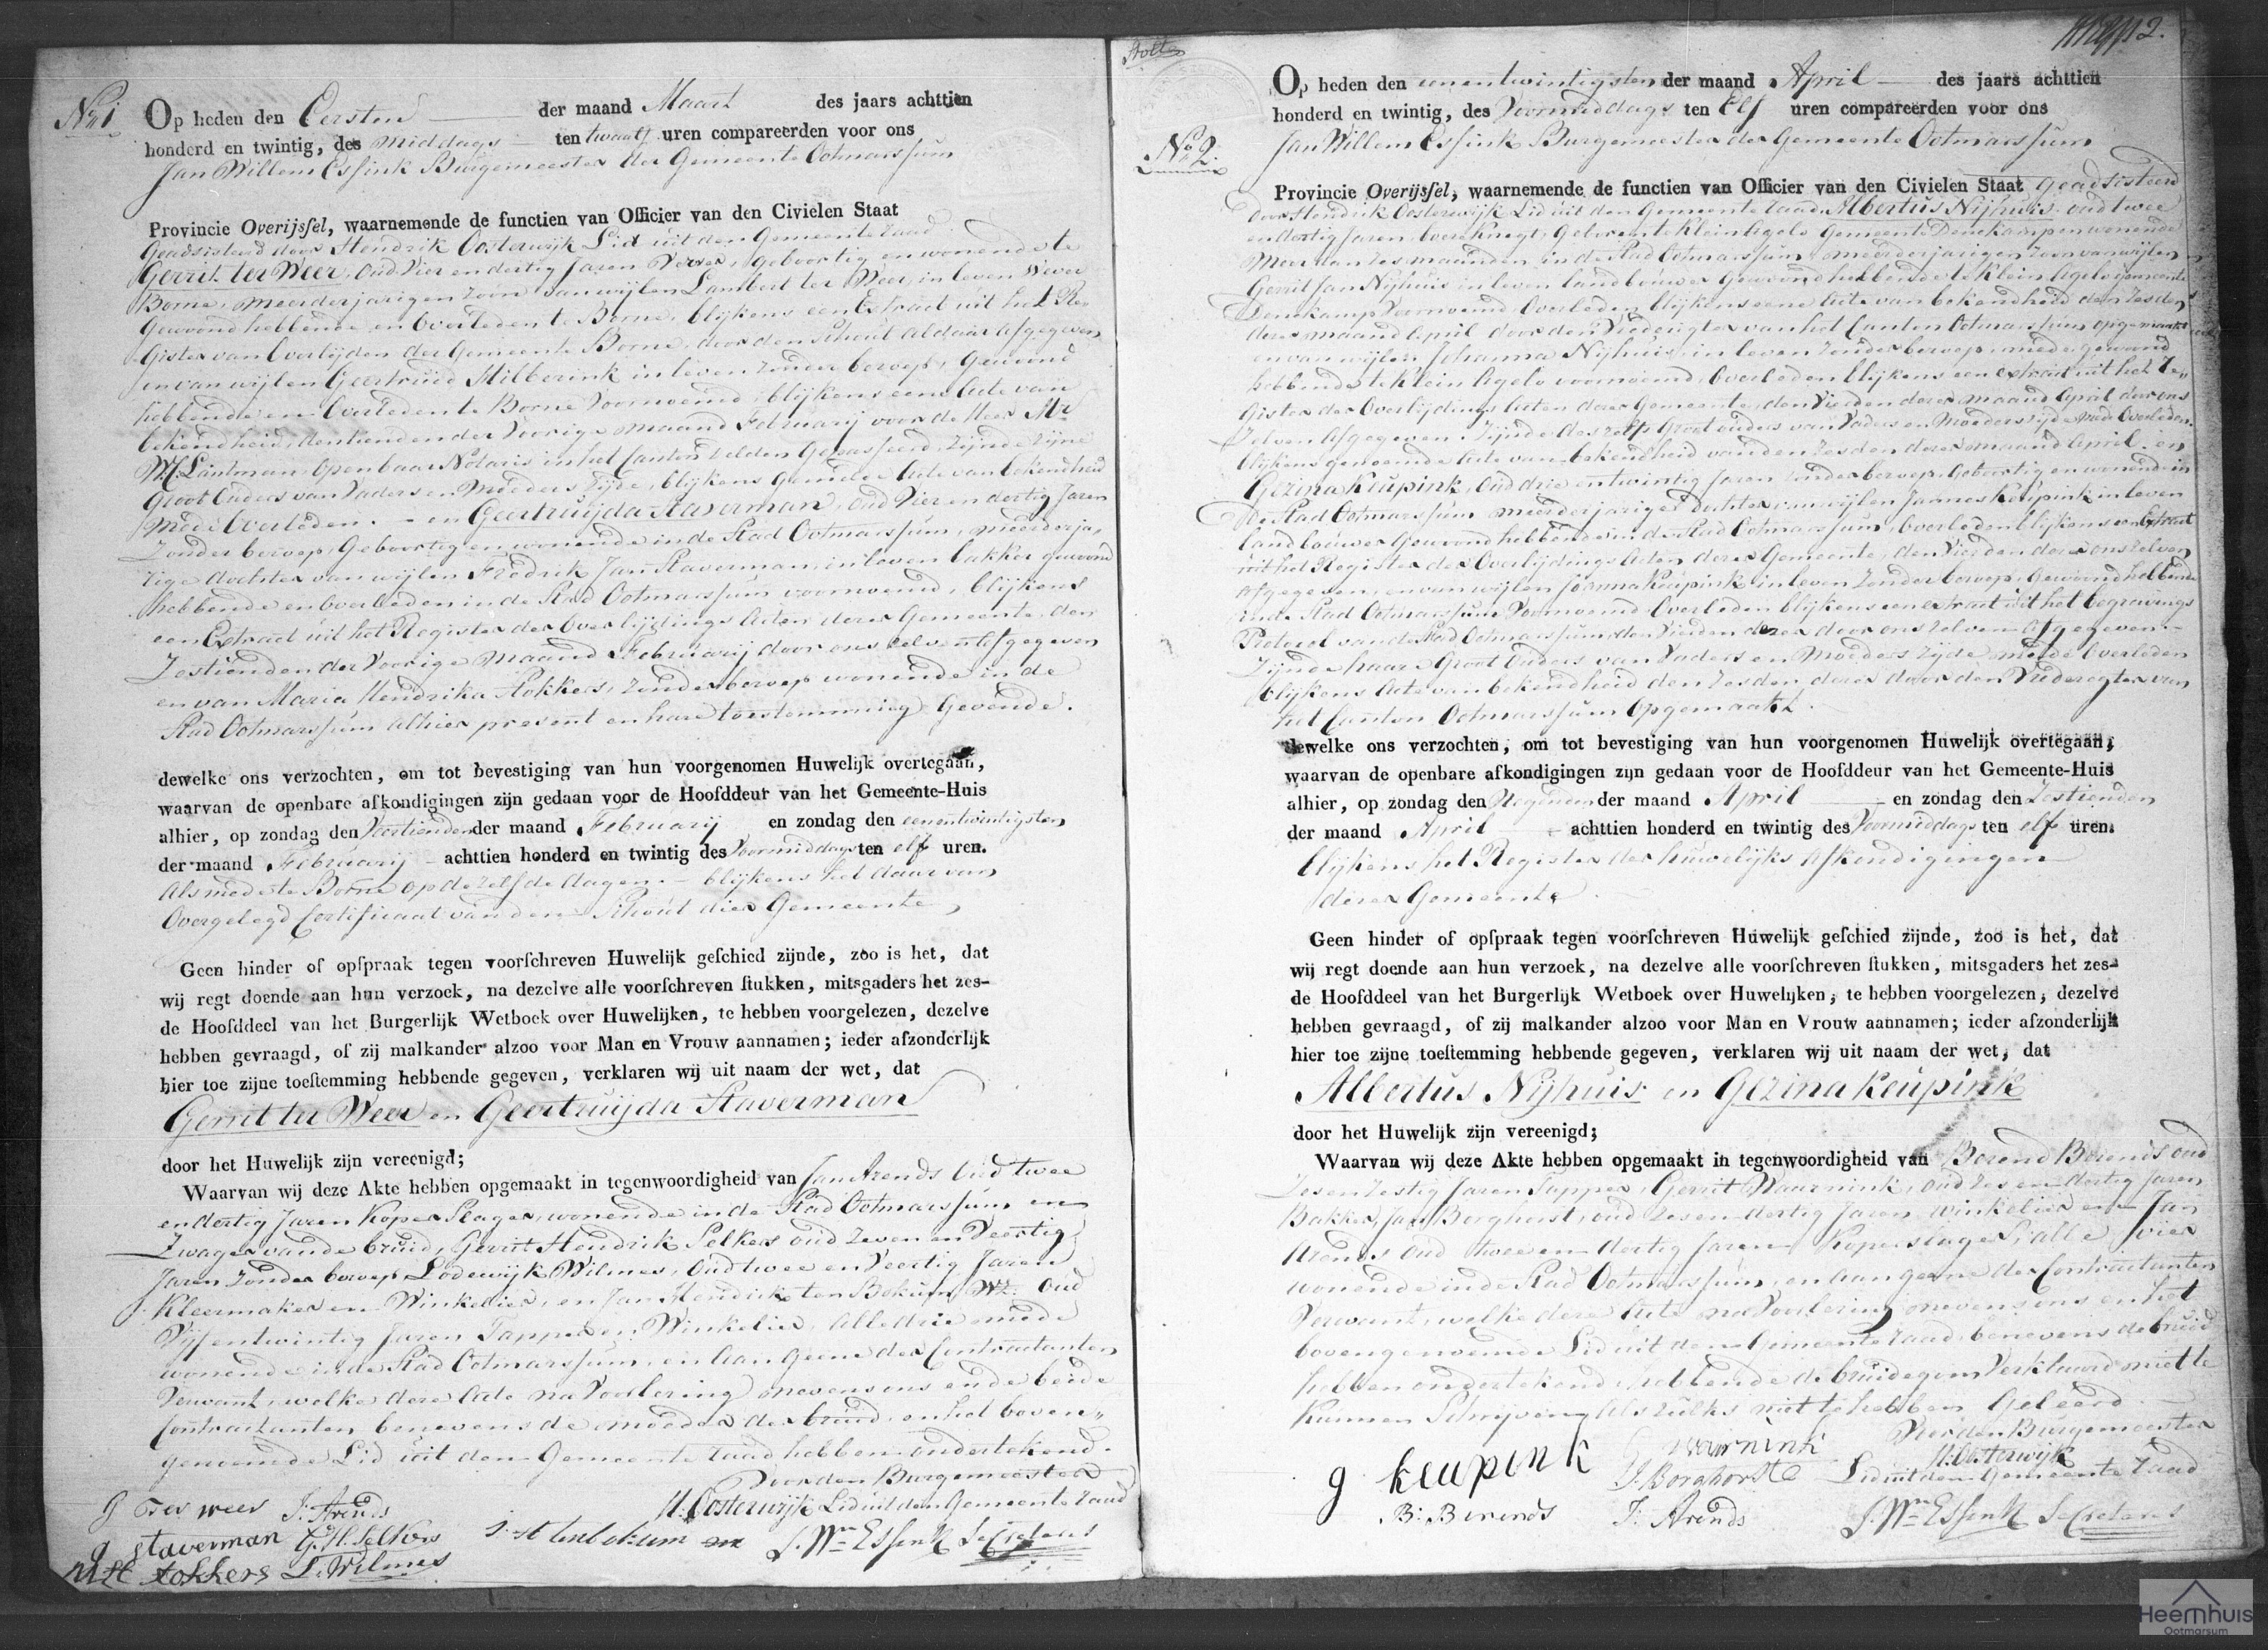 No. 1
Op heden den Eersten der maand Maart des jaars achttien
honderd en twintig, des middags ten twaalf uren compareerden voor ons
Jan Willem Essink Burgemeester der Gemeente Ootmarssum
Provincie Overijssel, waarnemende de functien van Officier van den Civielen Staat
Geadsisteerd door Hendrik Oosterwijk Lid uit den Gemeente raad
Gerrit ter Weer, oud Vier en dertig Jaren Wever, geboortig en wonende te
Borne, meerderjarigen Zoon van wijlen Lambert ter Weer, in leven Wever
Gewoond hebbende en Overleden te Borne, blijkens een Extract uit het Re-
gister van Overlijden der Gemeente Borne, door den Schout aldaar afgegeven
en van wijlen Geertruid Hilberink in leven zonder beroep, Gewoond
hebbende en Overleden te Borne Voornoemd, blijkens eene Acte van
bekendheid, den tienden der Voorige maand Februarij voor de Heer Mr
W. Lantman Openbaar Notaris in het Canton Delden Gepasseerd, Zijnde zijne
Groot Ouders van Vaders en Moeders Zijde, blijkens gemelde Acte van bekendheid
mede Overleden. - en Geertruijda Staverman, oud Vier en dertig Jaren
Zonder beroep, Geboortig en wonende in de Stad Ootmarssum, meerderja-
rige dochter van wijlen Fredrik Jan Staverman, in leven bakker gewoond
hebbende en Overleden in de Stad Ootmarssum voornoemd, blijkens
een Extract uit het Register der Overlijdings Acten dezer Gemeente, den
Zestienden der Voorige Maand Februarij door ons zelven Afgegeven
en van Maria Hendrika Stokkers, zonder beroep wonende in de
Stad Ootmarssum alhier present en hare toestemming Gevende.
dewelke ons verzochten, om tot bevestiging van hun voorgenomen Huwelijk overtegaan,
waarvan de openbare afkondigingen zijn gedaan voor de Hoofddeur van het Gemeente-Huis
alhier, op zondag den Veertienden der maand Februarij en zondag den eenentwintigsten
der maand Februarij achttien honderd en twintig des Voormiddags ten elf uren.
Als mede te Borne op de zelfde dagen - blijkens het daar van
Overgelegd Certificaat van den Schout dier Gemeente
Geen hinder of opspraak tegen voorschreven Huwelijk geschied zijnde, zoo is het, dat
wij regt doende aan hun verzoek, na dezelve alle voorschreven stukken, mitsgaders het zes-
de Hoofddeel van het Burgerlijk Wetboek over Huwelijken, te hebben voorgelezen, dezelve
hebben gevraagd, of zij malkander alzoo voor Man en Vrouw aannamen; ieder afzonderlijk
hier toe zijne toestemming hebbende gegeven, verklaren wij uit naam der wet, dat
Gerrit ter Weer en Geertruijda Staverman
door het Huwelijk zijn vereenigd;
Waarvan wij deze Akte hebben opgemaakt in tegenwoordigheid van Jan Arends Oud twee
en dertig Jaren Koper Slager, wonende in de Stad Ootmarssum en
Zwager van de bruid, Gerrit Hendrik Selkers oud Zeven en Veertig
Jaren zonder beroep, Lodewijk Wilmes, Oud twee en Veertig Jaren
Kleermaker en Winkelier, en Jan Hendrik ten Bokum Wz. Oud
Vijfentwintig Jaren Tapper en Winkelier, Alle drie mede
wonende in de Stad Ootmarssum, en Aan Geene der Contractanten
Verwant, welke deze Acte na Voorlezing nevens ons en de beide
Contractanten benevens de moeder der bruid, en het boven-
genoemde Lid uit den Gemeente raad hebben ondertekend.
Voor den Burgemeester
H. Oosterwijk Lid uit den Gemeente raad
g Ter weer J. Arends
g staverman G. H. Selkers J. H. ten bokum J. Wm Essink Secretaris
M H stokkers L. Wilmes
2.
No. 2.
Op heden den eenentwintigsten der maand April des jaars achttien
honderd en twintig, des Voormiddags ten Elf uren compareerden voor ons
Jan Willem Essink Burgemeester der Gemeente Ootmarssum
Provincie Overijssel, waarnemende de functien van Officier van den Civielen Staat Geadsisteerd
door Hendrik Oosterwijk Lid uit den Gemeente raad Albertus Nijhuis oud twee
en dertig Jaren, boereknegt, Geboren te Klein Agelo Gemeente Denekamp en wonende
Meer dan zes maanden in de Stad Ootmarssum, meerderjarigen Zoon van wijlen
Gerrit Jan Nijhuis in leven landbouwer Gewoond hebbende te Klein Agelo gemeente
Denekamp Voornoemd, Overleden blijkens eene Acte van bekendheid den Zesden
dezer maand April door den Vrederegter van het Canton Ootmarssum opgemaakt
en van wijlen Johanna Nijhuis, in leven zonder beroep, mede gewoond
hebbende te Klein Agelo voornoemd, Overleden blijkens een extract uit het Re-
gister der Overlijdings Acten dezer Gemeente, den Vierden dezer maand April door ons
Zelven Afgegeven. Zijnde deszelfs Groot ouders van Vaders en Moeders zijde mede Overleden
blijkens genoemde Acte van bekendheid van den Zesden dezer maand April. en
Gezina Keupink, Oud drie en twintig Jaren zonder beroep, Geboortig en wonende in
de Stad Ootmarssum meerderjarige dochter van wijlen Jannes Keupink in leven
landbouwer Gewoond hebbende in de Stad Ootmarssum, Overleden blijkens een Extract
uit het Register der Overlijdings Acten dezer Gemeente, den Vierden dezer ons zelven
afgegeven, en van wijlen Joanna Keupink in leven zonder beroep, Gewoond hebbende
in de Stad Ootmarssum Voornoemd Overleden blijkens een extract uit het begravings
Protocol van de Stad Ootmarssum, den Vierden dezer door ons zelven afgegeven
Zijnde haare Groot Ouders van Vaders en Moeders Zijde mede Overleden
blijkens Acte van bekendheid den Zesden dezer door den Vrederegter van
het Canton Ootmarssum Opgemaakt.
dewelke ons verzochten, om tot bevestiging van hun voorgenomen Huwelijk overtegaan;
waarvan de openbare afkondigingen zijn gedaan voor de Hoofddeur van het Gemeente-Huis
alhier, op zondag den Negenden der maand April en zondag den Zestienden
der maand April achttien honderd en twintig des Voormiddags ten elf uren.
blijkens het Register der huwelijks afkondigingen
dezer Gemeente
Geen hinder of opspraak tegen voorschreven Huwelijk geschied zijnde, zoo is het, dat
wij regt doende aan hun verzoek, na dezelve alle voorschreven stukken, mitsgaders het zes-
de Hoofddeel van het Burgerlijk Wetboek over Huwelijken, te hebben voorgelezen, dezelve
hebben gevraagd, of zij malkander alzoo voor Man en Vrouw aannamen; ieder afzonderlijk
hier toe zijne toestemming hebbende gegeven, verklaren wij uit naam der wet, dat
Albertus Nijhuis en Gezina Keupink
door het Huwelijk zijn vereenigd;
Waarvan wij deze Akte hebben opgemaakt in tegenwoordigheid van Berend Berends oud
Zesenzestig Jaren Tapper, Gerrit Waarnink, oud zes en dertig Jaren
Bakker, Jan Borghorst, oud zesendertig Jaren winkelier en Jan
Arends Oud twee en dertig Jaren Koperslager, alle vier
wonende in de Stad Ootmarssum, en Aan geene der Contractanten
Verwant, welke deze Acte na Voorlezing nevens ons en het
bovengenoemde Lid uit den Gemeente raad, benevens de bruid
hebben ondertekend, hebbende de bruidegom Verklaard niet te
Kunnen Schrijven, Als zulks niet te hebben Geleerd
Voor den Burgemeester
g keupink G waarnink H. Oosterwijk
J. Borghorst Lid uit den Gemeente raad
B: Berends J. Arends J. Wm Essink Secretaris
Heemhuis
Ootmarsum